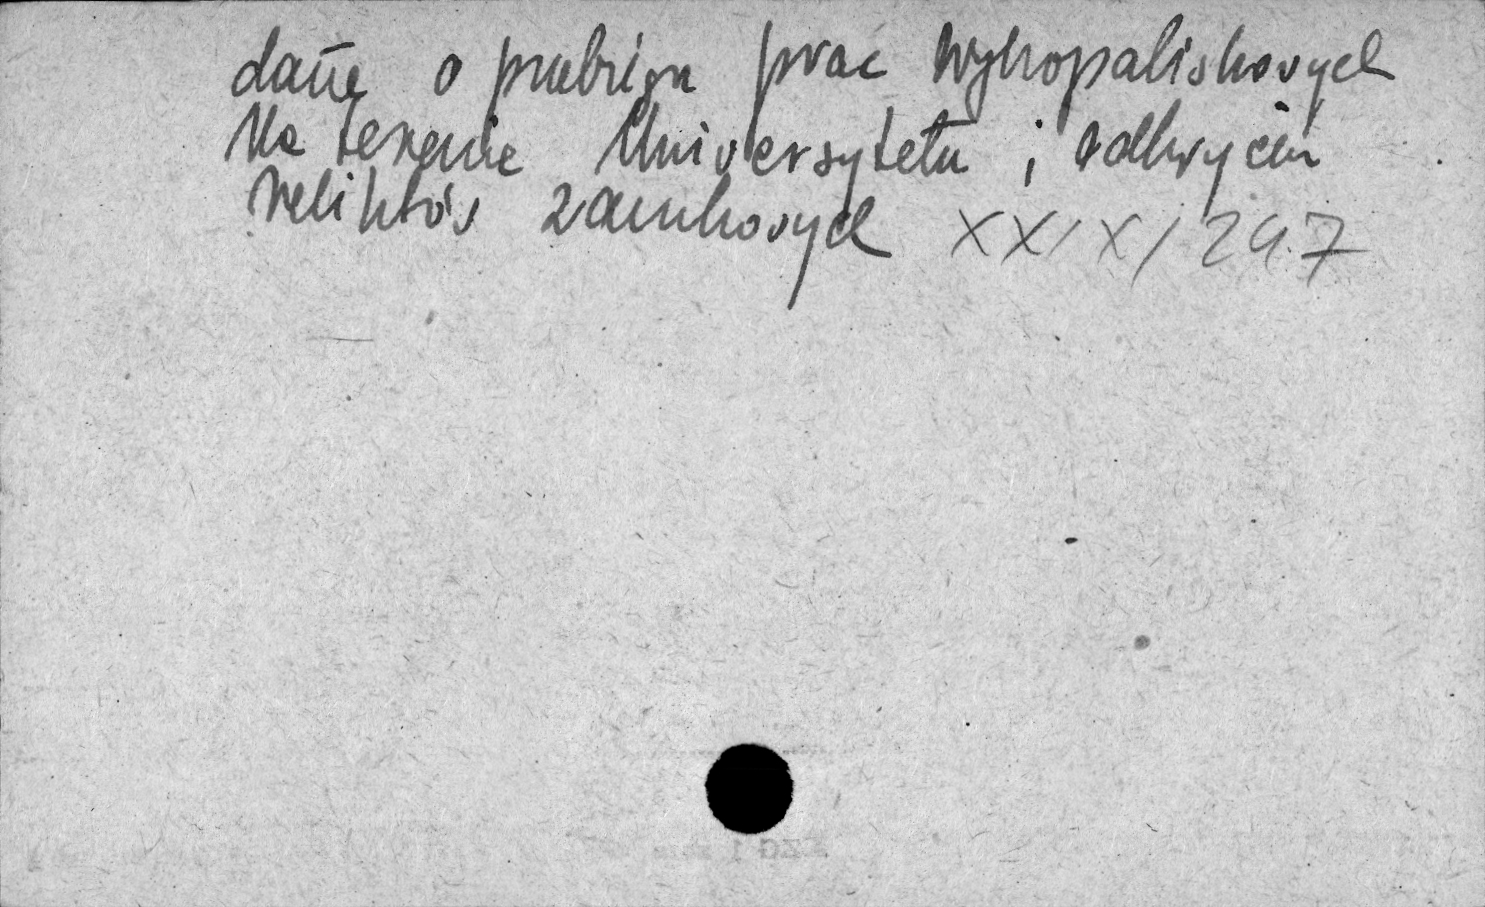 dane o przebiegu prac wykopaliskowych
na terenie Uniwersytetu i odkryciu
reliktów zamkowych XX/X/247